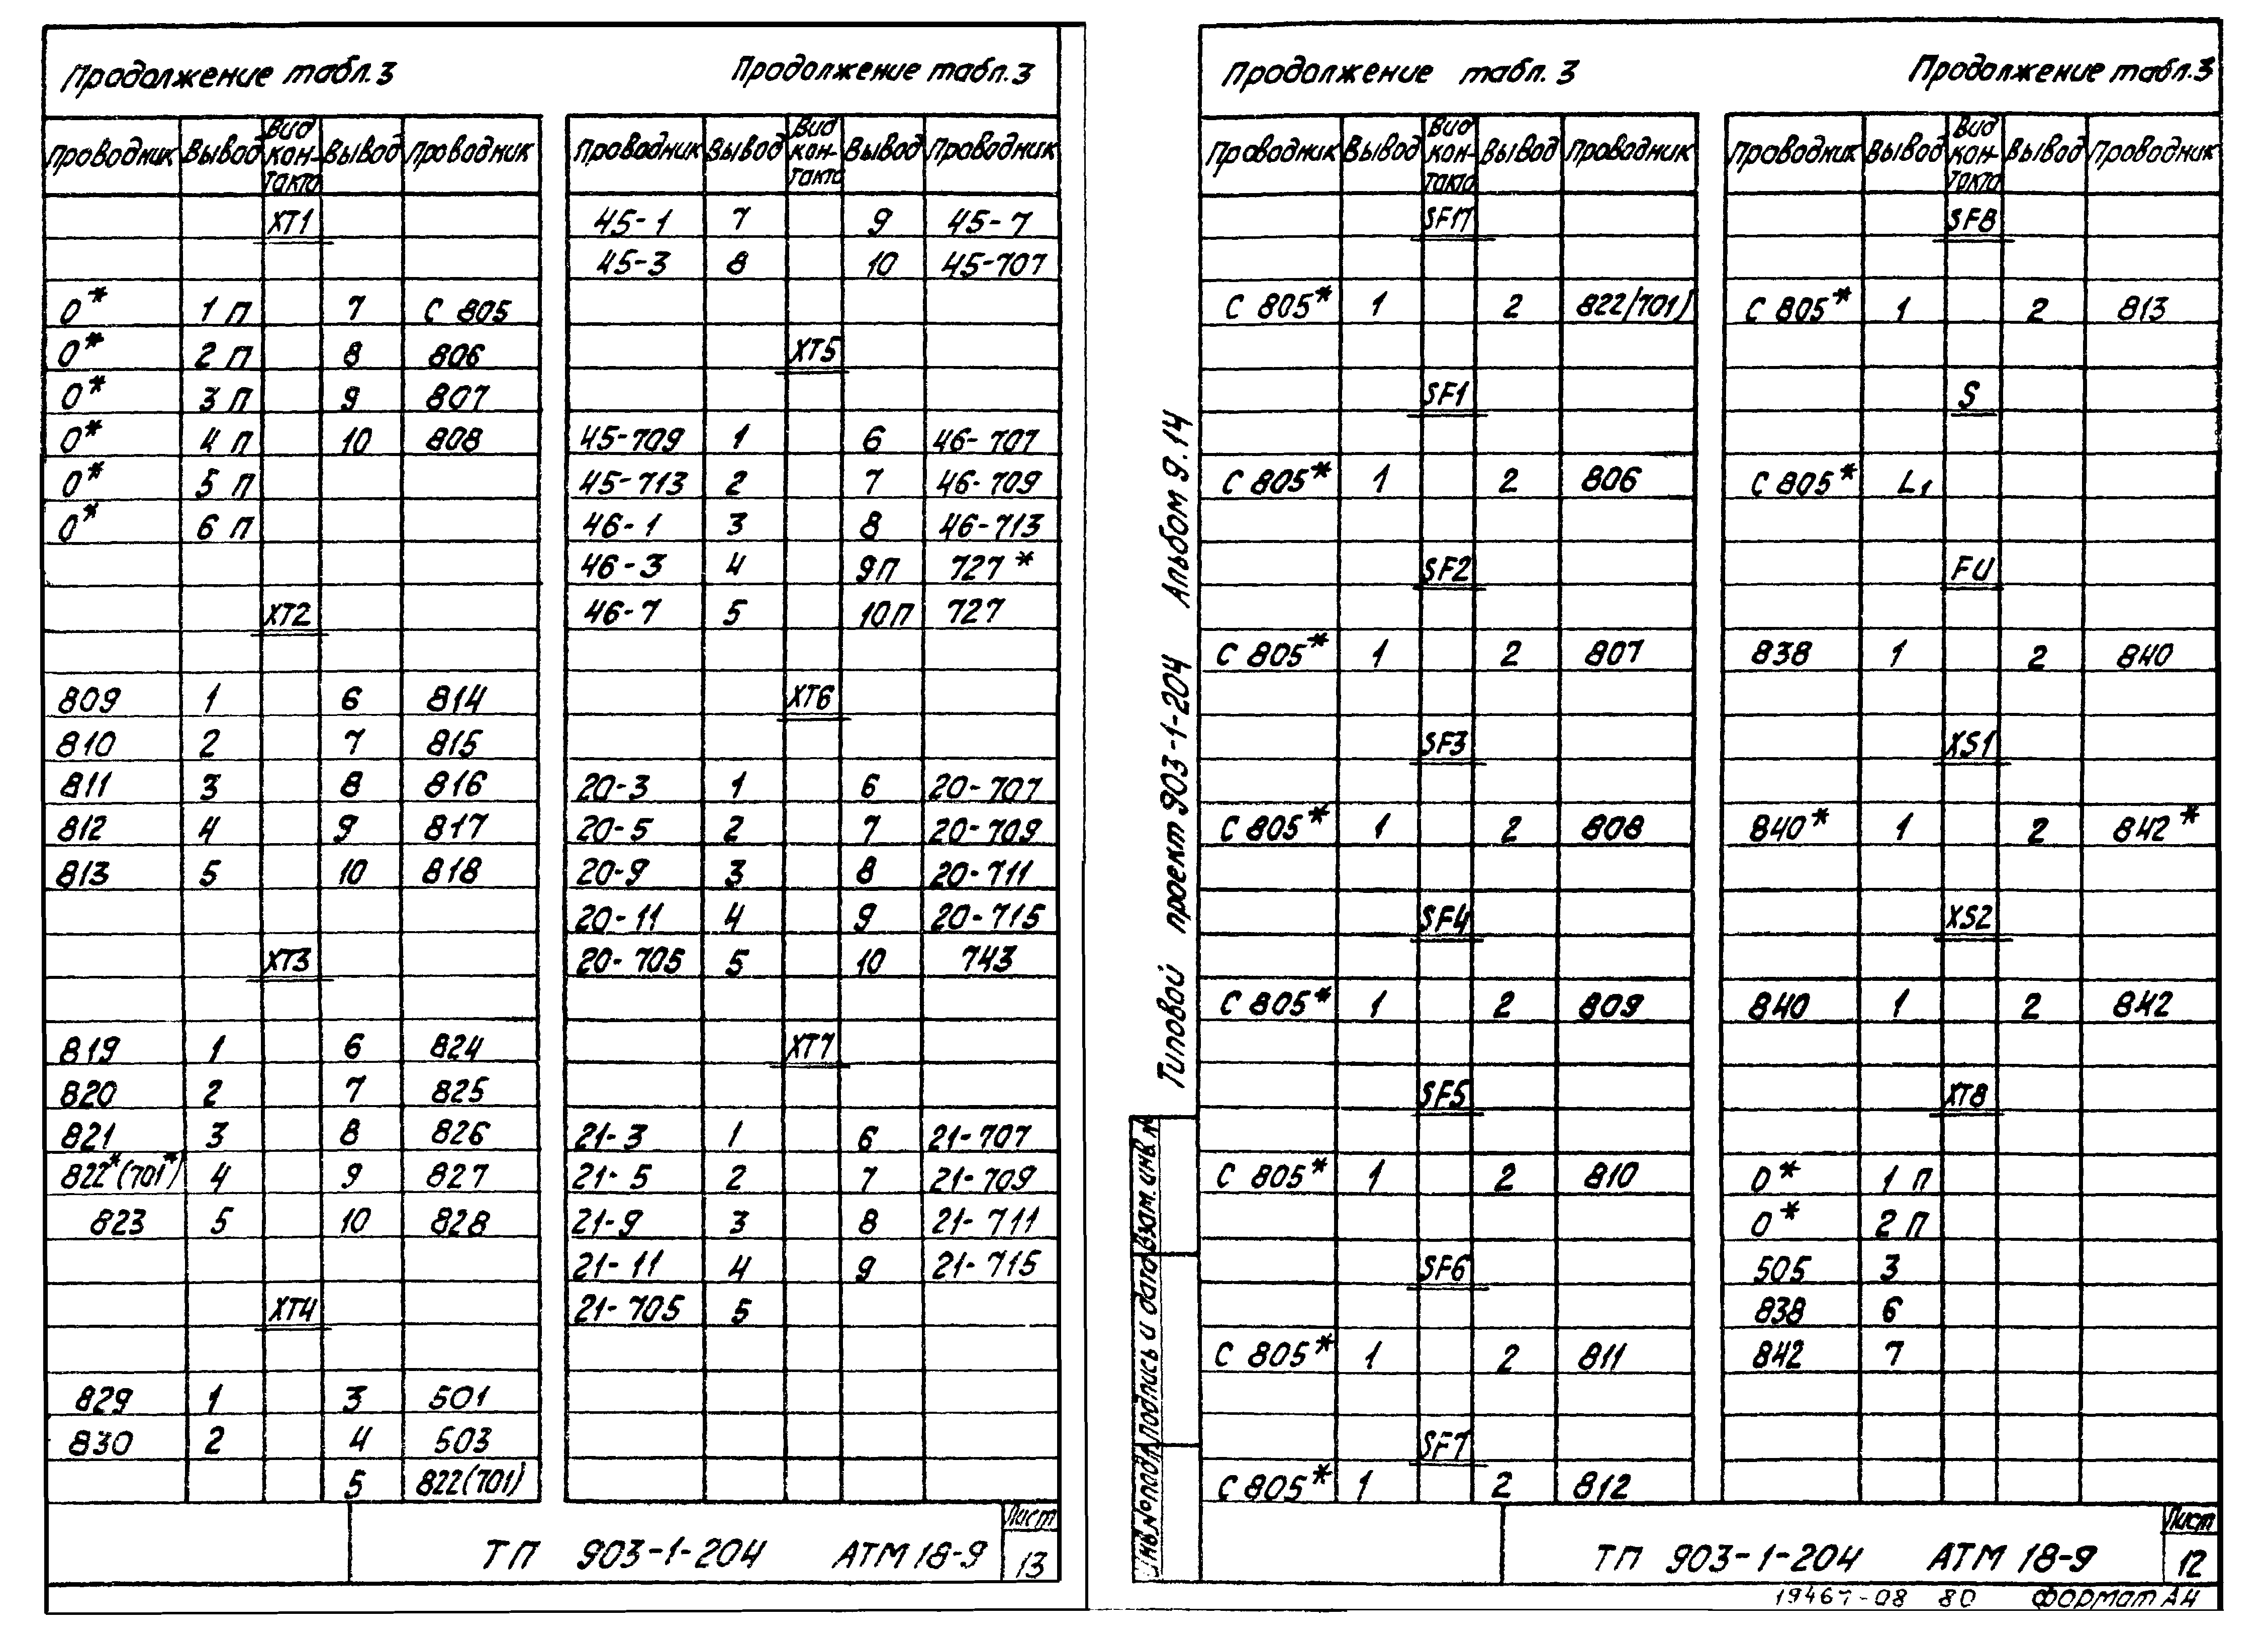 Продолжение табл.3
Проводник Вывод Вид кон-такта Вывод Проводник
XT1
0* 1П 7 С 805
0* 2П 8 806
0* 3П 9 807
0* 4П 10 808
0* 5П
0* 6П
XT2
809 1 6 814
810 2 7 815
811 3 8 816
812 4 9 817
813 5 10 818
XT3
819 1 6 824
820 2 7 825
821 3 8 826
822*(701*) 4 9 827
823 5 10 828
XT4
829 1 3 501
830 2 4 503
5 822(701)
Продолжение табл.3
Проводник Вывод Вид кон-такта Вывод Проводник
45-1 7 9 45-7
45-3 8 10 45-707
XT5
45-709 1 6 46-707
45-713 2 7 46-709
46-1 3 8 46-713
46-3 4 9П 727*
46-7 5 10П 727
XT6
20-3 1 6 20-707
20-5 2 7 20-709
20-9 3 8 20-711
20-11 4 9 20-715
20-705 5 10 743
XT7
21-3 1 6 21-707
21-5 2 7 21-709
21-9 3 8 21-711
21-11 4 9 21-715
21-705 5
ТП 903-1-204 АТМ 18-9
Лист
13
Типовой проект 903-1-204 Альбом 9.14
Инв.№ подл. Подпись и дата Взам. инв. №
Продолжение табл.3
Проводник Вывод Вид кон-такта Вывод Проводник
SF17
С 805* 1 2 822(701)
SF1
С 805* 1 2 806
SF2
С 805* 1 2 807
SF3
С 805* 1 2 808
SF4
С 805* 1 2 809
SF5
С 805* 1 2 810
SF6
С 805* 1 2 811
SF7
С 805* 1 2 812
Продолжение табл.3
Проводник Вывод Вид кон-такта Вывод Проводник
SF8
С 805* 1 2 813
S
С 805* L1
FU
838 1 2 840
XS1
840* 1 2 842*
XS2
840 1 2 842
XT8
0* 1П
0* 2П
505 3
838 6
842 7
ТП 903-1-204 АТМ 18-9
Лист
12
19467-08 80 Формат А4